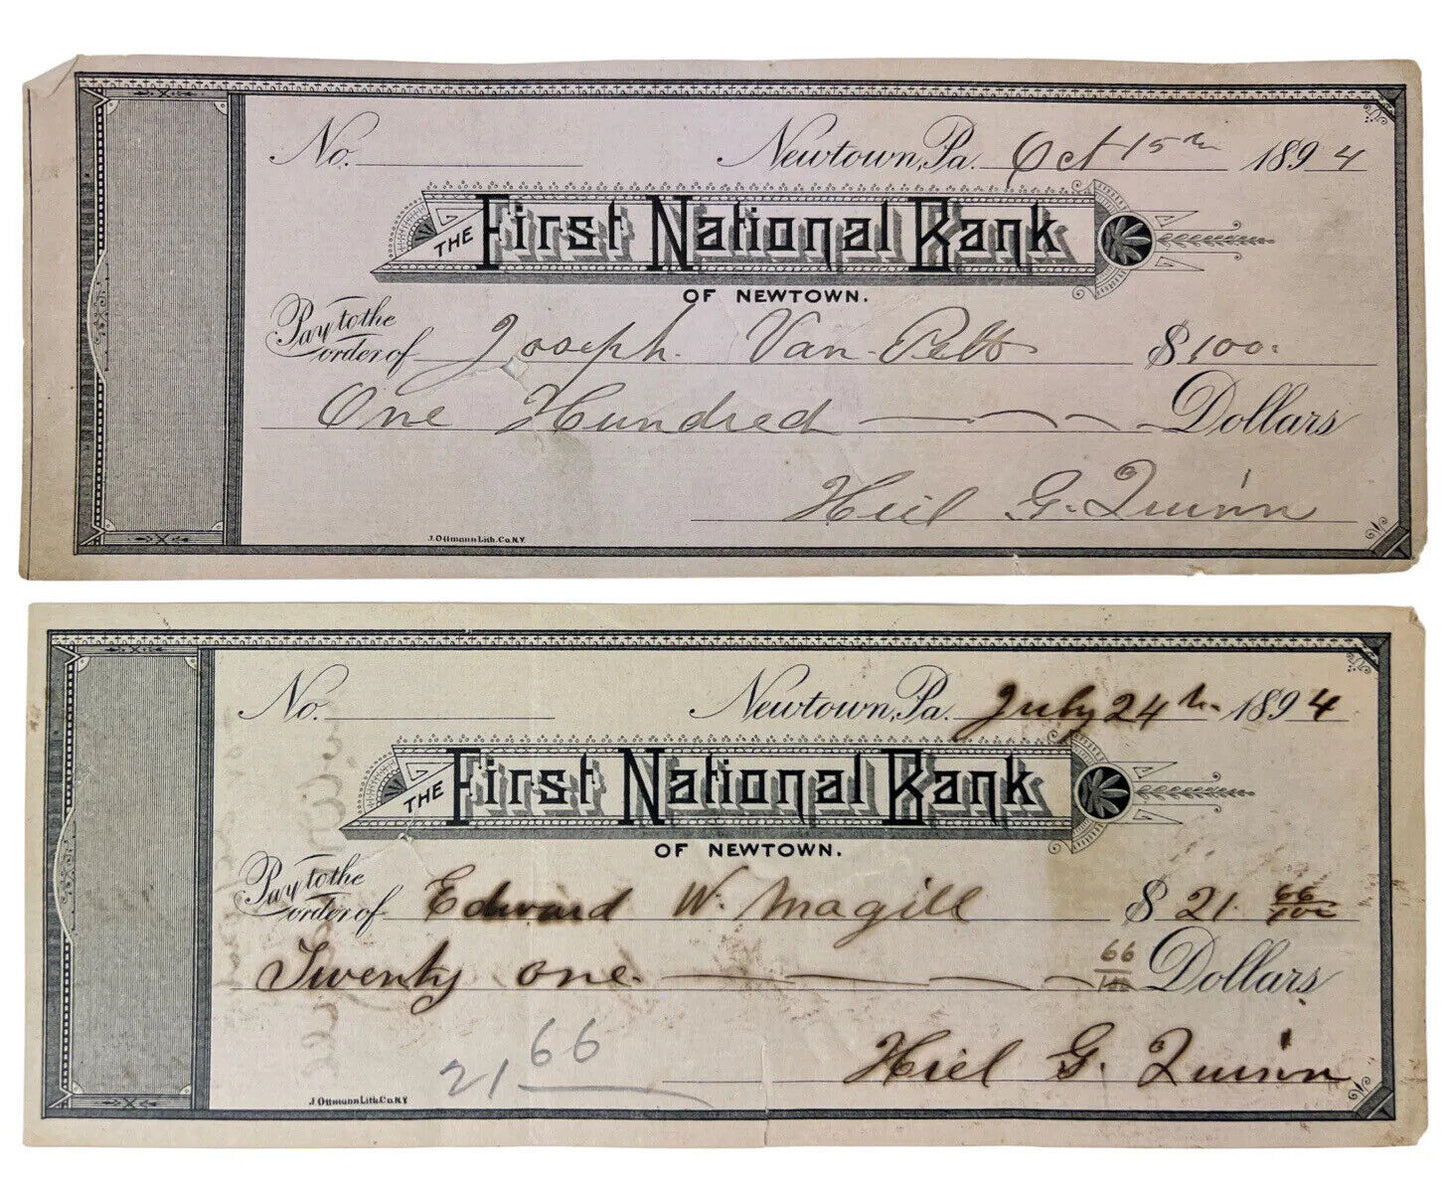 No. Newtown, Pa. Oct 15th 1894
THE First National Bank
OF NEWTOWN.
Pay to the
order of Joseph Van Pelt $100.
One Hundred Dollars
Hiel G. Quinn
J. Ottmann Lith. Co. N.Y.
No. Newtown, Pa. July 24th 1894
THE First National Bank
OF NEWTOWN.
Pay to the
order of Edward W. Magill $21. 66/100
Twenty one 66/100 Dollars
Hiel G. Quinn
21 66
J. Ottmann Lith. Co. N.Y.